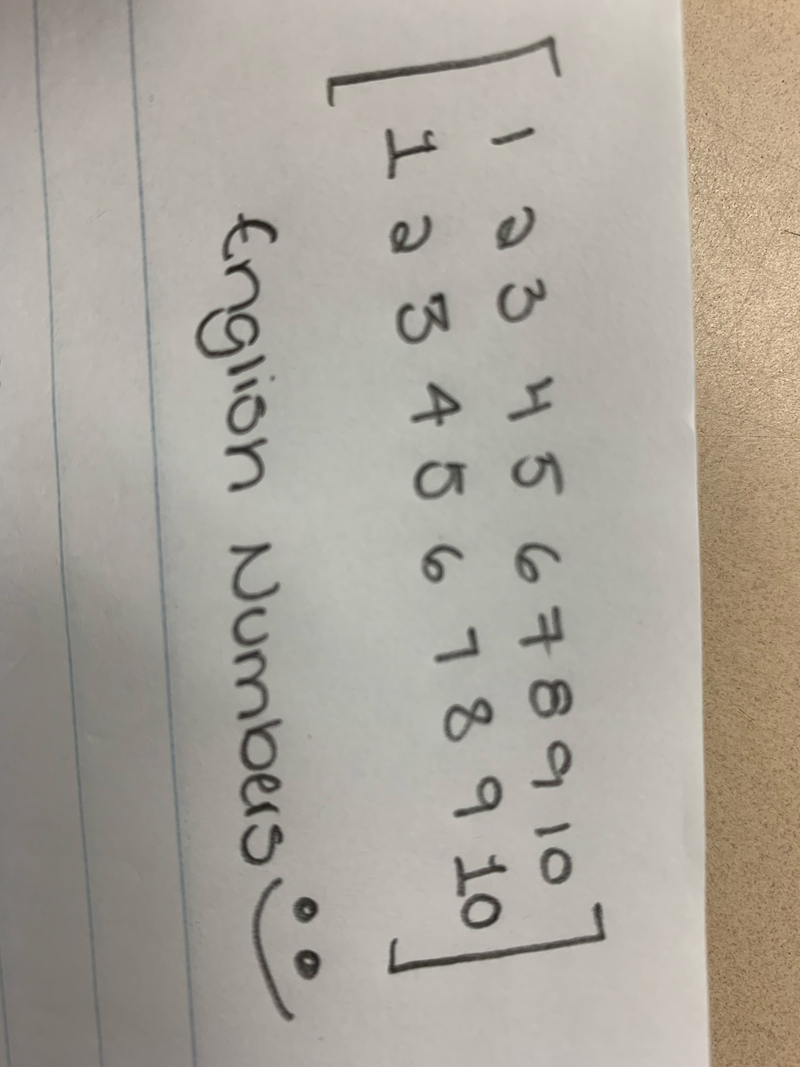 [ 1 2 3 4 5 6 7 8 9 10
1 2 3 4 5 6 7 8 9 10 ]
English Numbers :)